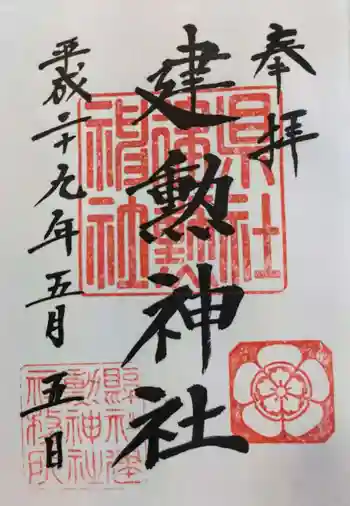 奉拝
建勲神社
平成二十九年五月五日
県社
建勲
神社